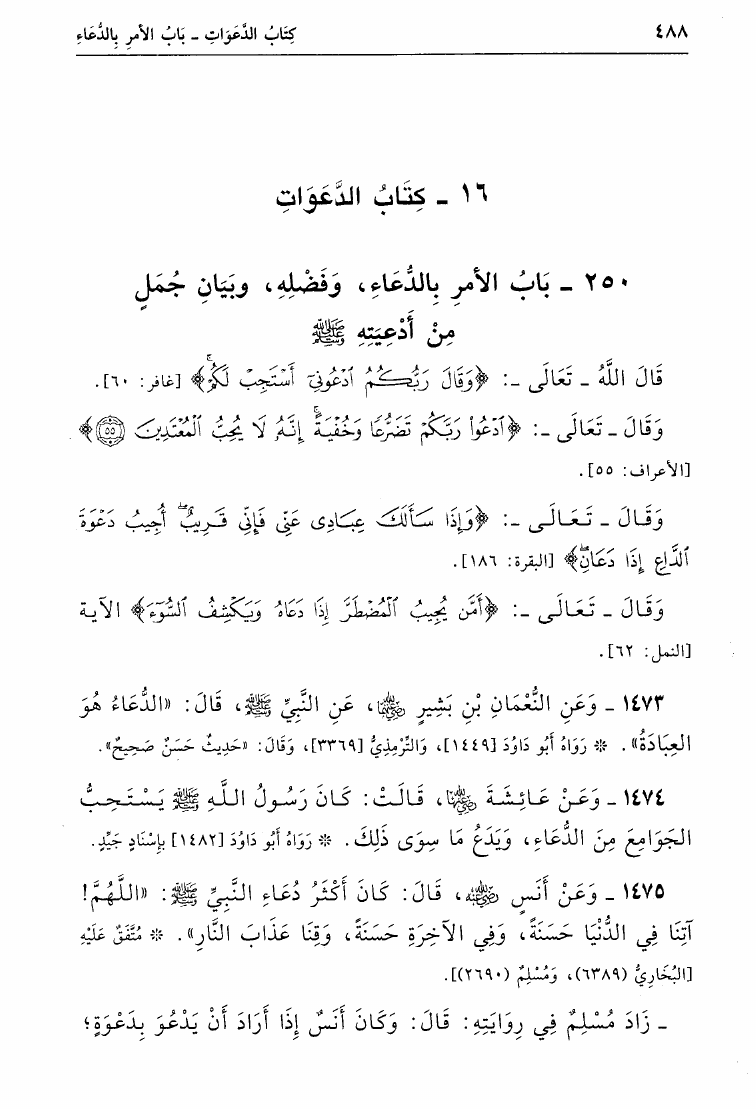 ٤٨٨ كِتَابُ الدَّعَوَاتِ ـ بَابُ الأمرِ بِالدُّعَاءِ
١٦ ـ كِتَابُ الدَّعَوَاتِ
٢٥٠ ـ بَابُ الأمرِ بِالدُّعَاءِ، وَفَضْلِهِ، وبَيَانِ جُمَلٍ
مِنْ أَدْعِيَتِهِ ﷺ
قَالَ اللَّهُ ـ تَعَالَى ـ: ﴿وَقَالَ رَبُّكُمُ ٱدْعُونِىٓ أَسْتَجِبْ لَكُمْ ۚ﴾ [غافر: ٦٠].
وَقَالَ ـ تَعَالَى ـ: ﴿ٱدْعُوا۟ رَبَّكُمْ تَضَرُّعًا وَخُفْيَةً ۚ إِنَّهُۥ لَا يُحِبُّ ٱلْمُعْتَدِينَ ۝٥٥﴾
[الأعراف: ٥٥].
وَقَالَ ـ تَعَالَى ـ: ﴿وَإِذَا سَأَلَكَ عِبَادِى عَنِّى فَإِنِّى قَرِيبٌ ۖ أُجِيبُ دَعْوَةَ
ٱلدَّاعِ إِذَا دَعَانِ ۖ﴾ [البقرة: ١٨٦].
وَقَالَ ـ تَعَالَى ـ: ﴿أَمَّن يُجِيبُ ٱلْمُضْطَرَّ إِذَا دَعَاهُ وَيَكْشِفُ ٱلسُّوٓءَ﴾ الآية
[النمل: ٦٢].
١٤٧٣ ـ وَعَنِ النُّعْمَانِ بْنِ بَشِيرٍ رضي الله عنهما، عَنِ النَّبِيِّ ﷺ، قَالَ: «الدُّعَاءُ هُوَ
العِبَادَةُ». * رَوَاهُ أَبُو دَاوُدَ [١٤٤٩]، وَالتِّرْمِذِيُّ [٣٣٦٩]، وَقَالَ: «حَدِيثٌ حَسَنٌ صَحِيحٌ».
١٤٧٤ ـ وَعَنْ عَائِشَةَ رضي الله عنها، قَالَتْ: كَانَ رَسُولُ اللَّهِ ﷺ يَسْتَحِبُّ
الجَوَامِعَ مِنَ الدُّعَاءِ، وَيَدَعُ مَا سِوَى ذَلِكَ. * رَوَاهُ أَبُو دَاوُدَ [١٤٨٢] بِإِسْنَادٍ جَيِّدٍ.
١٤٧٥ ـ وَعَنْ أَنَسٍ رضي الله عنه، قَالَ: كَانَ أَكْثَرُ دُعَاءِ النَّبِيِّ ﷺ: «اللَّهُمَّ!
آتِنَا فِي الدُّنْيَا حَسَنَةً، وَفِي الآخِرَةِ حَسَنَةً، وَقِنَا عَذَابَ النَّارِ». * مُتَّفَقٌ عَلَيْهِ
[البُخَارِيُّ (٦٣٨٩)، وَمُسْلِمٌ (٢٦٩٠)].
ـ زَادَ مُسْلِمٌ فِي رِوَايَتِهِ: قَالَ: وَكَانَ أَنَسٌ إِذَا أَرَادَ أَنْ يَدْعُوَ بِدَعْوَةٍ؛